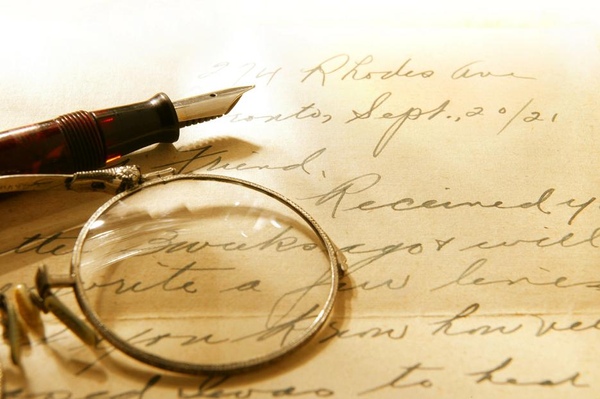 74 Rhodes Ave
ronto, Sept. 20/21
Friend,
Received y
tter 3 weeks ago & will
write a few lines
you know how ver
I was to hear